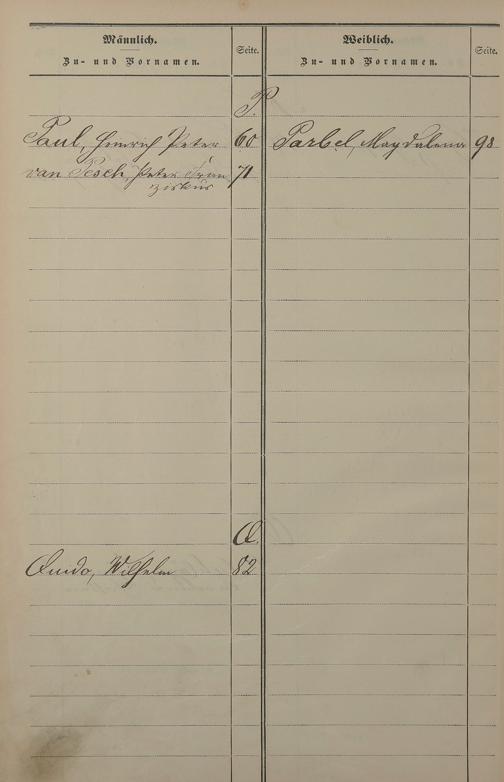 Männlich.
Zu- und Vornamen.
Seite.
Weiblich.
Zu- und Vornamen.
Seite.
P.
Paul, Heinrich Peter 60
Parbel, Magdalena 98
van Pesch, Peter Fran 71
ziskus
Q.
Quudo, Wilhelm 82